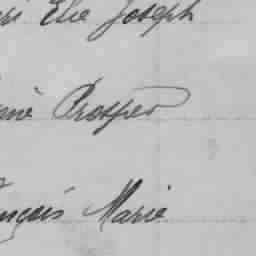 Elie Joseph
Prosper
ançois Marie